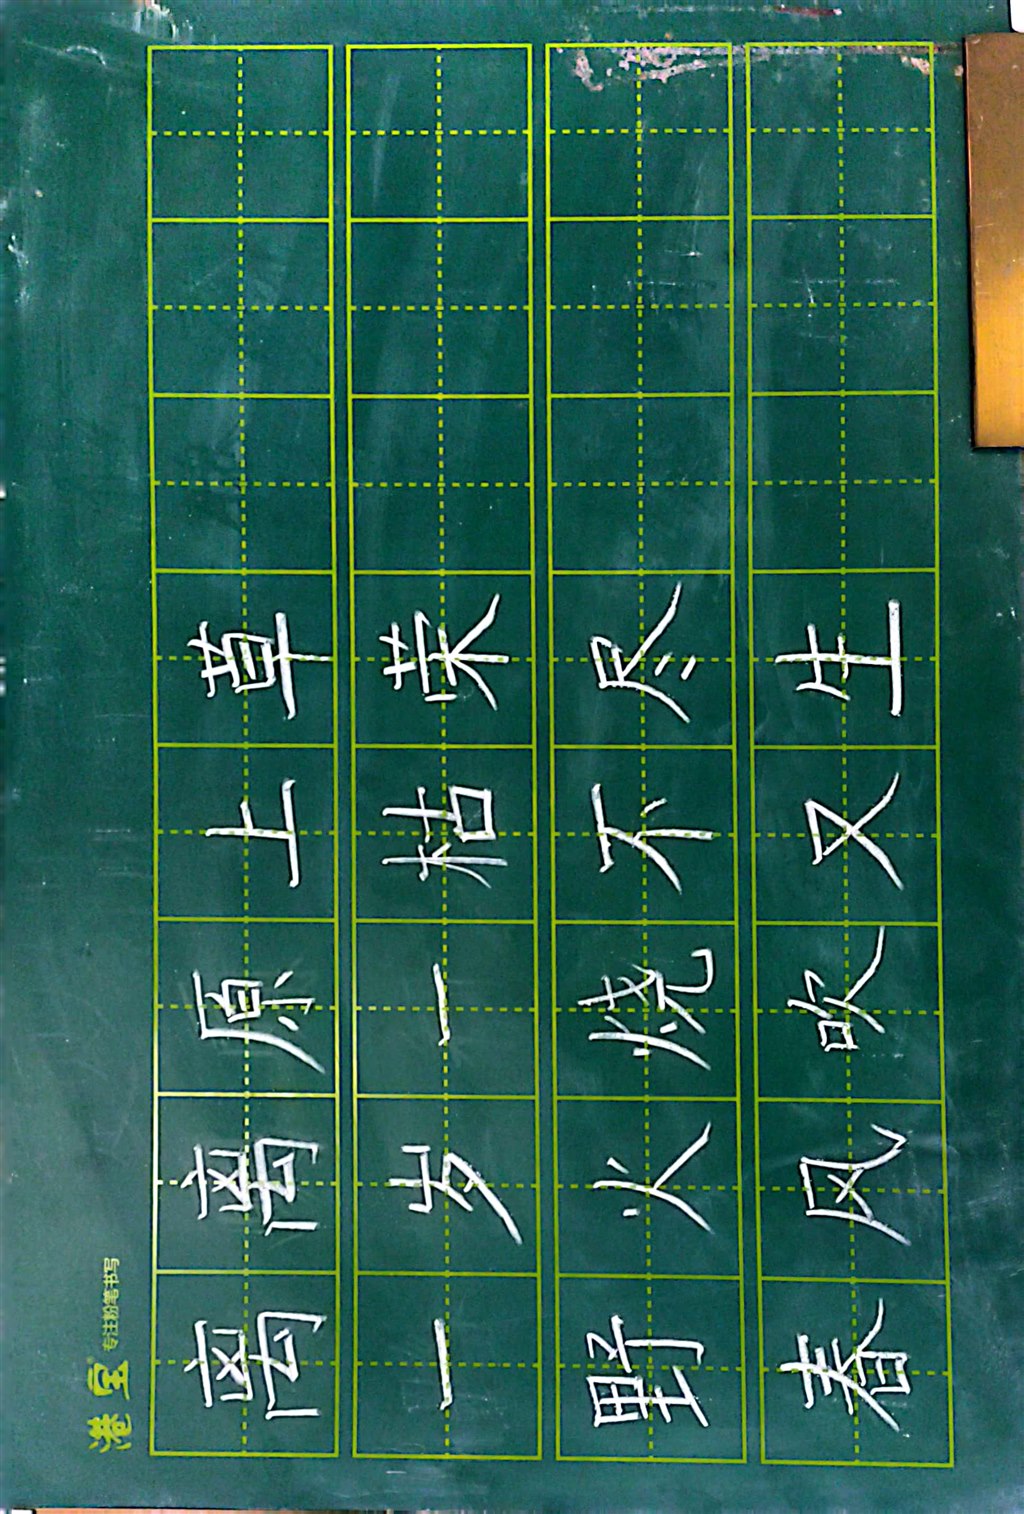 港宝 专注粉笔书写
离离原上草
一岁一枯荣
野火烧不尽
春风吹又生